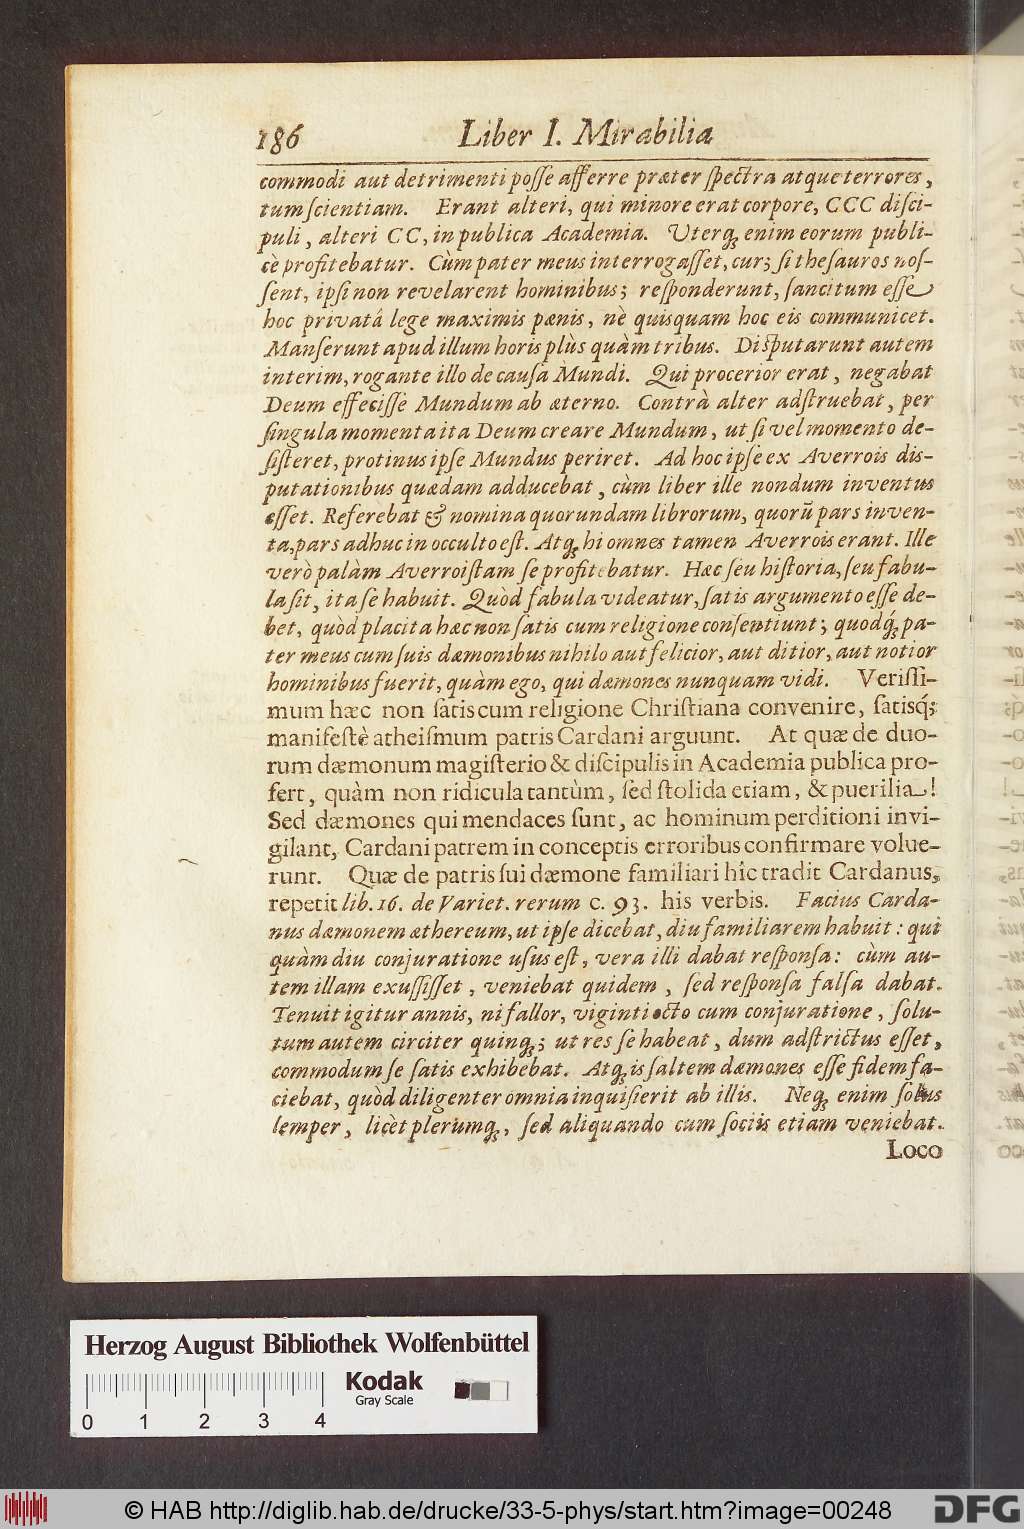 186 Liber I. Mirabilia
commodi aut detrimenti poſſe afferre præter ſpectra atque terrores,
tum ſcientiam. Erant alteri, qui minore erat corpore, CCC diſci-
puli, alteri CC, in publica Academia. Uterq; enim eorum publi-
cè profitebatur. Cùm pater meus interrogaſſet, cur; ſi theſauros noſ-
ſent, ipſi non revelarent hominibus; reſponderunt, ſancitum eſſe
hoc privatá lege maximis pœnis, nè quisquam hoc eis communicet.
Manſerunt apud illum horis plùs quàm tribus. Diſputarunt autem
interim, rogante illo de cauſa Mundi. Qui procerior erat, negabat
Deum effeciſſe Mundum ab æterno. Contrà alter adſtruebat, per
ſingula momenta ita Deum creare Mundum, ut ſi vel momento de-
ſiſteret, protinus ipſe Mundus periret. Ad hoc ipſe ex Averrois dis-
putationibus quædam adducebat, cùm liber ille nondum inventus
eſſet. Referebat & nomina quorundam librorum, quorũ pars inven-
ta, pars adhuc in occulto eſt. Atq; hi omnes tamen Averrois erant. Ille
verò palàm Averroiſtam ſe profitebatur. Hæc ſeu hiſtoria, ſeu fabu-
la ſit, ita ſe habuit. Quòd fabula videatur, ſatis argumento eſſe de-
bet, quòd placita hæc non ſatis cum religione conſentiunt; quodq́; pa-
ter meus cum ſuis dæmonibus nihilo aut felicior, aut ditior, aut notior
hominibus fuerit, quàm ego, qui dæmones nunquam vidi. Veriſſi-
mum hæc non ſatis cum religione Chriſtiana convenire, ſatisq́;
manifeſtè atheiſmum patris Cardani arguunt. At quæ de duo-
rum dæmonum magiſterio & diſcipulis in Academia publica pro-
fert, quàm non ridicula tantùm, ſed ſtolida etiam, & puerilia!
Sed dæmones qui mendaces ſunt, ac hominum perditioni invi-
gilant, Cardani patrem in conceptis erroribus confirmare volue-
runt. Quæ de patris ſui dæmone familiari hîc tradit Cardanus,
repetit lib. 16. de Variet. rerum c. 93. his verbis. Facius Carda-
nus dæmonem æthereum, ut ipſe dicebat, diu familiarem habuit: qui
quàm diu conjuratione uſus eſt, vera illi dabat reſponſa: cùm au-
tem illam exuſſiſſet, veniebat quidem, ſed reſponſa falſa dabat.
Tenuit igitur annis, ni fallor, viginti octo cum conjuratione, ſolu-
tum autem circiter quinq;; ut res ſe habeat, dum adſtrictus eſſet,
commodum ſe ſatis exhibebat. Atq; is ſaltem dæmones eſſe fidem fa-
ciebat, quòd diligenter omnia inquiſierit ab illis. Neq; enim ſolus
ſemper, licèt plerumq;, ſed aliquando cum ſociis etiam veniebat.
Loco
Herzog August Bibliothek Wolfenbüttel
Kodak
Gray Scale
0 1 2 3 4
© HAB http://diglib.hab.de/drucke/33-5-phys/start.htm?image=00248
DFG